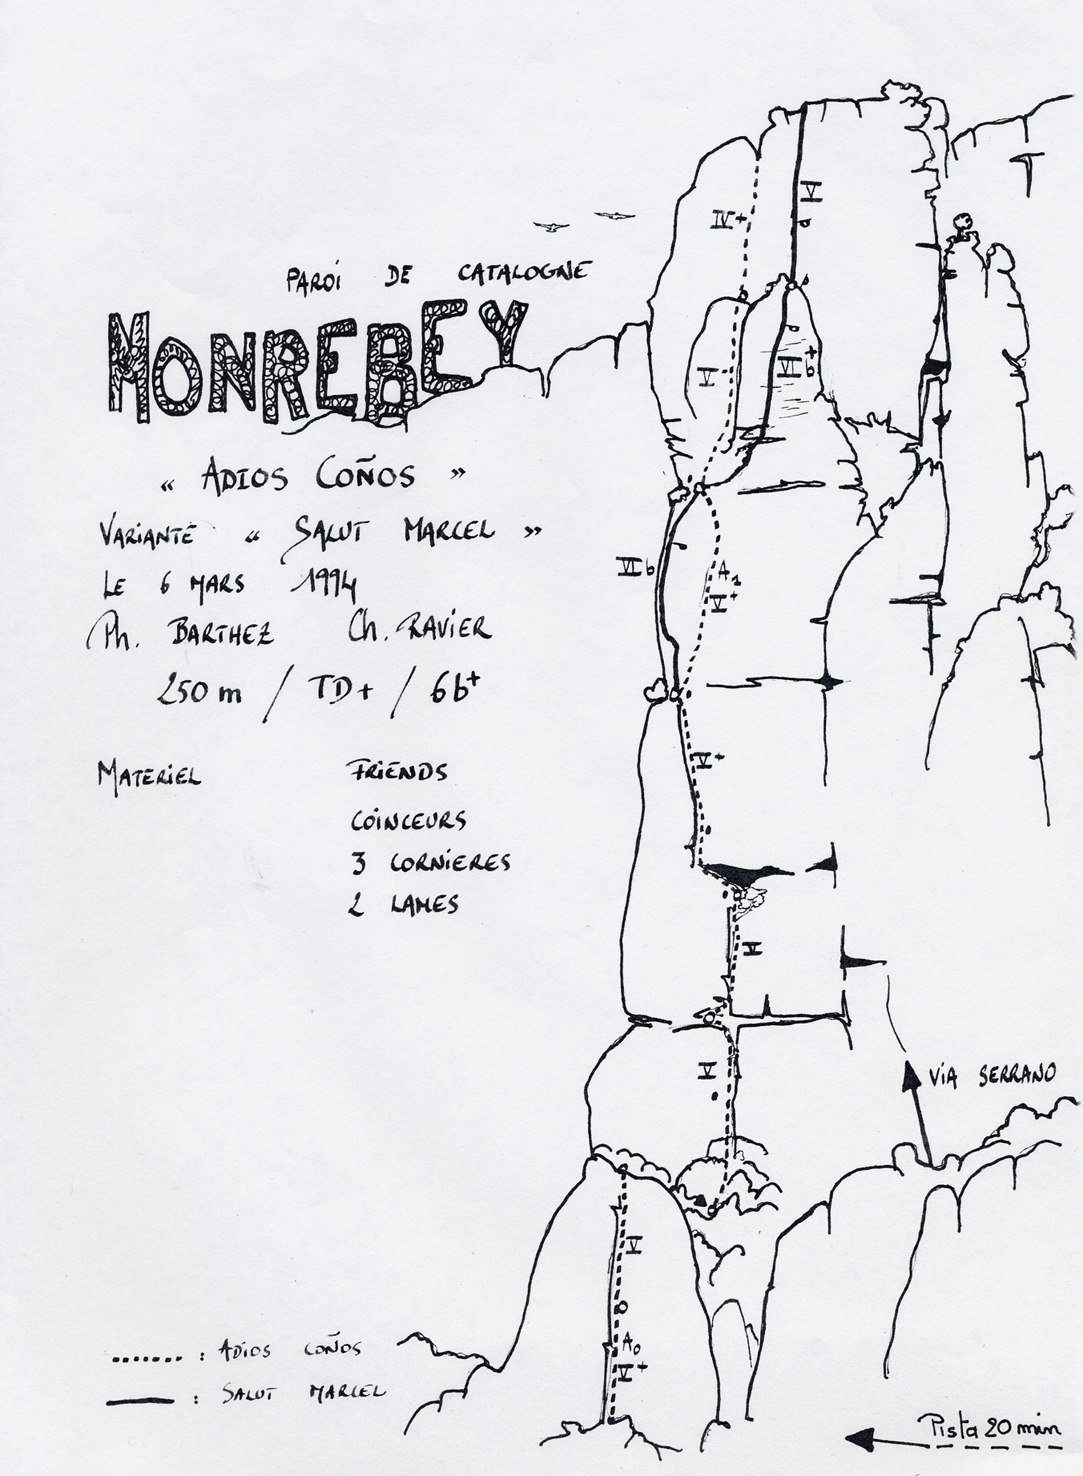 PAROI DE CATALOGNE
MONREBEY
« ADIOS COÑOS »
VARIANTE « SALUT MARCEL »
LE 6 MARS 1994
Ph. BARTHEZ Ch. RAVIER
250 m / TD+ / 6b+
MATERIEL FRIENDS
COINCEURS
3 CORNIERES
2 LAMES
V
IV+
V
VI+b
VIb
A1
V+
V+
V
V
VIA SERRANO
V
A0
V+
: ADIOS COÑOS
: SALUT MARCEL
Pista 20 min